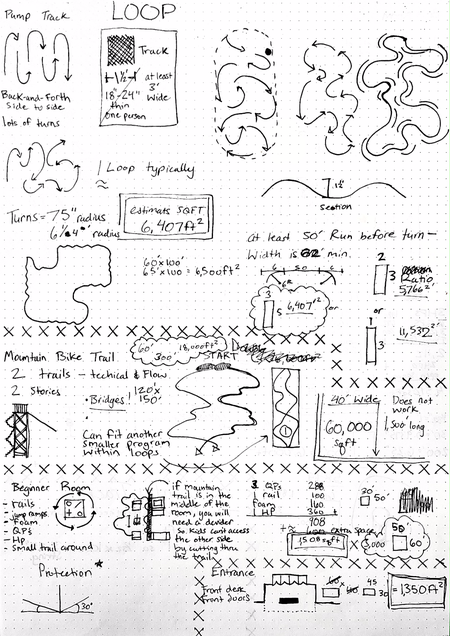 Pump Track
LOOP
Track
1½'
at least
3'
wide
18"-24"
thin
one person
Back-and-Forth
Side to side
lots of turns
1 Loop typically
≈
Turns = 75" radius
radius
estimate SQFT
6,407ft²
1½'
section
60'x100'
65'x100 = 6,500ft²
at least 50' Run before turn -
Width is 62 min.
6
50
6
6R
3
5
6,407ft²
or
2
3
Ratio
5,766²
or
1
3
11,532²
Mountain Bike Trail
60'
300'
18,000ft²
START
2 trails - techical & Flow
2 Stories
• Bridges
120's
150'
Can fit another
smaller program
within loops
40' Wide
60,000
sqft
Does not
work
1,500 long
Beginner Room
- rails
- Jump ramps
- Foam
- QP's
- HP
- Small trail around
if mountain
trail is in the
middle of the
room, you will
need a devider
so kids cant access
the other side
by cutting thru
the trails
3 QP's 288
1 rail 100
1 Foam 160
1 HP 360
908
+ ≈ 600 extra space
1,508 sqft
30'
50'
50
60'
3,000
Protection *
30°
Entrance
front desk
front doors
60
45
30
= 1,350 ft²